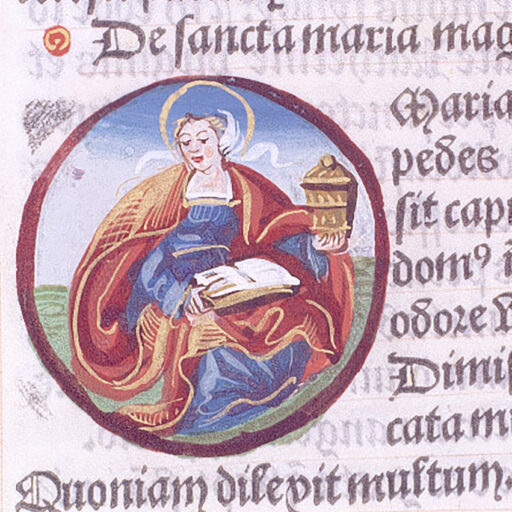 De sancta maria mag
Maria
pedes
sit capi
domꝰ
odore
Dimis
cata m
Quoniam dilexit multum.